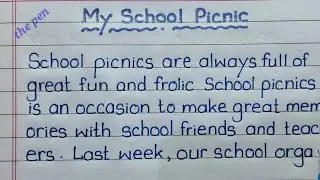 the pen
My School Picnic
School picnics are always full of
great fun and frolic School picnics
is an occasion to make great mem
ories with school friends and teac
ers. Last week, our school orga